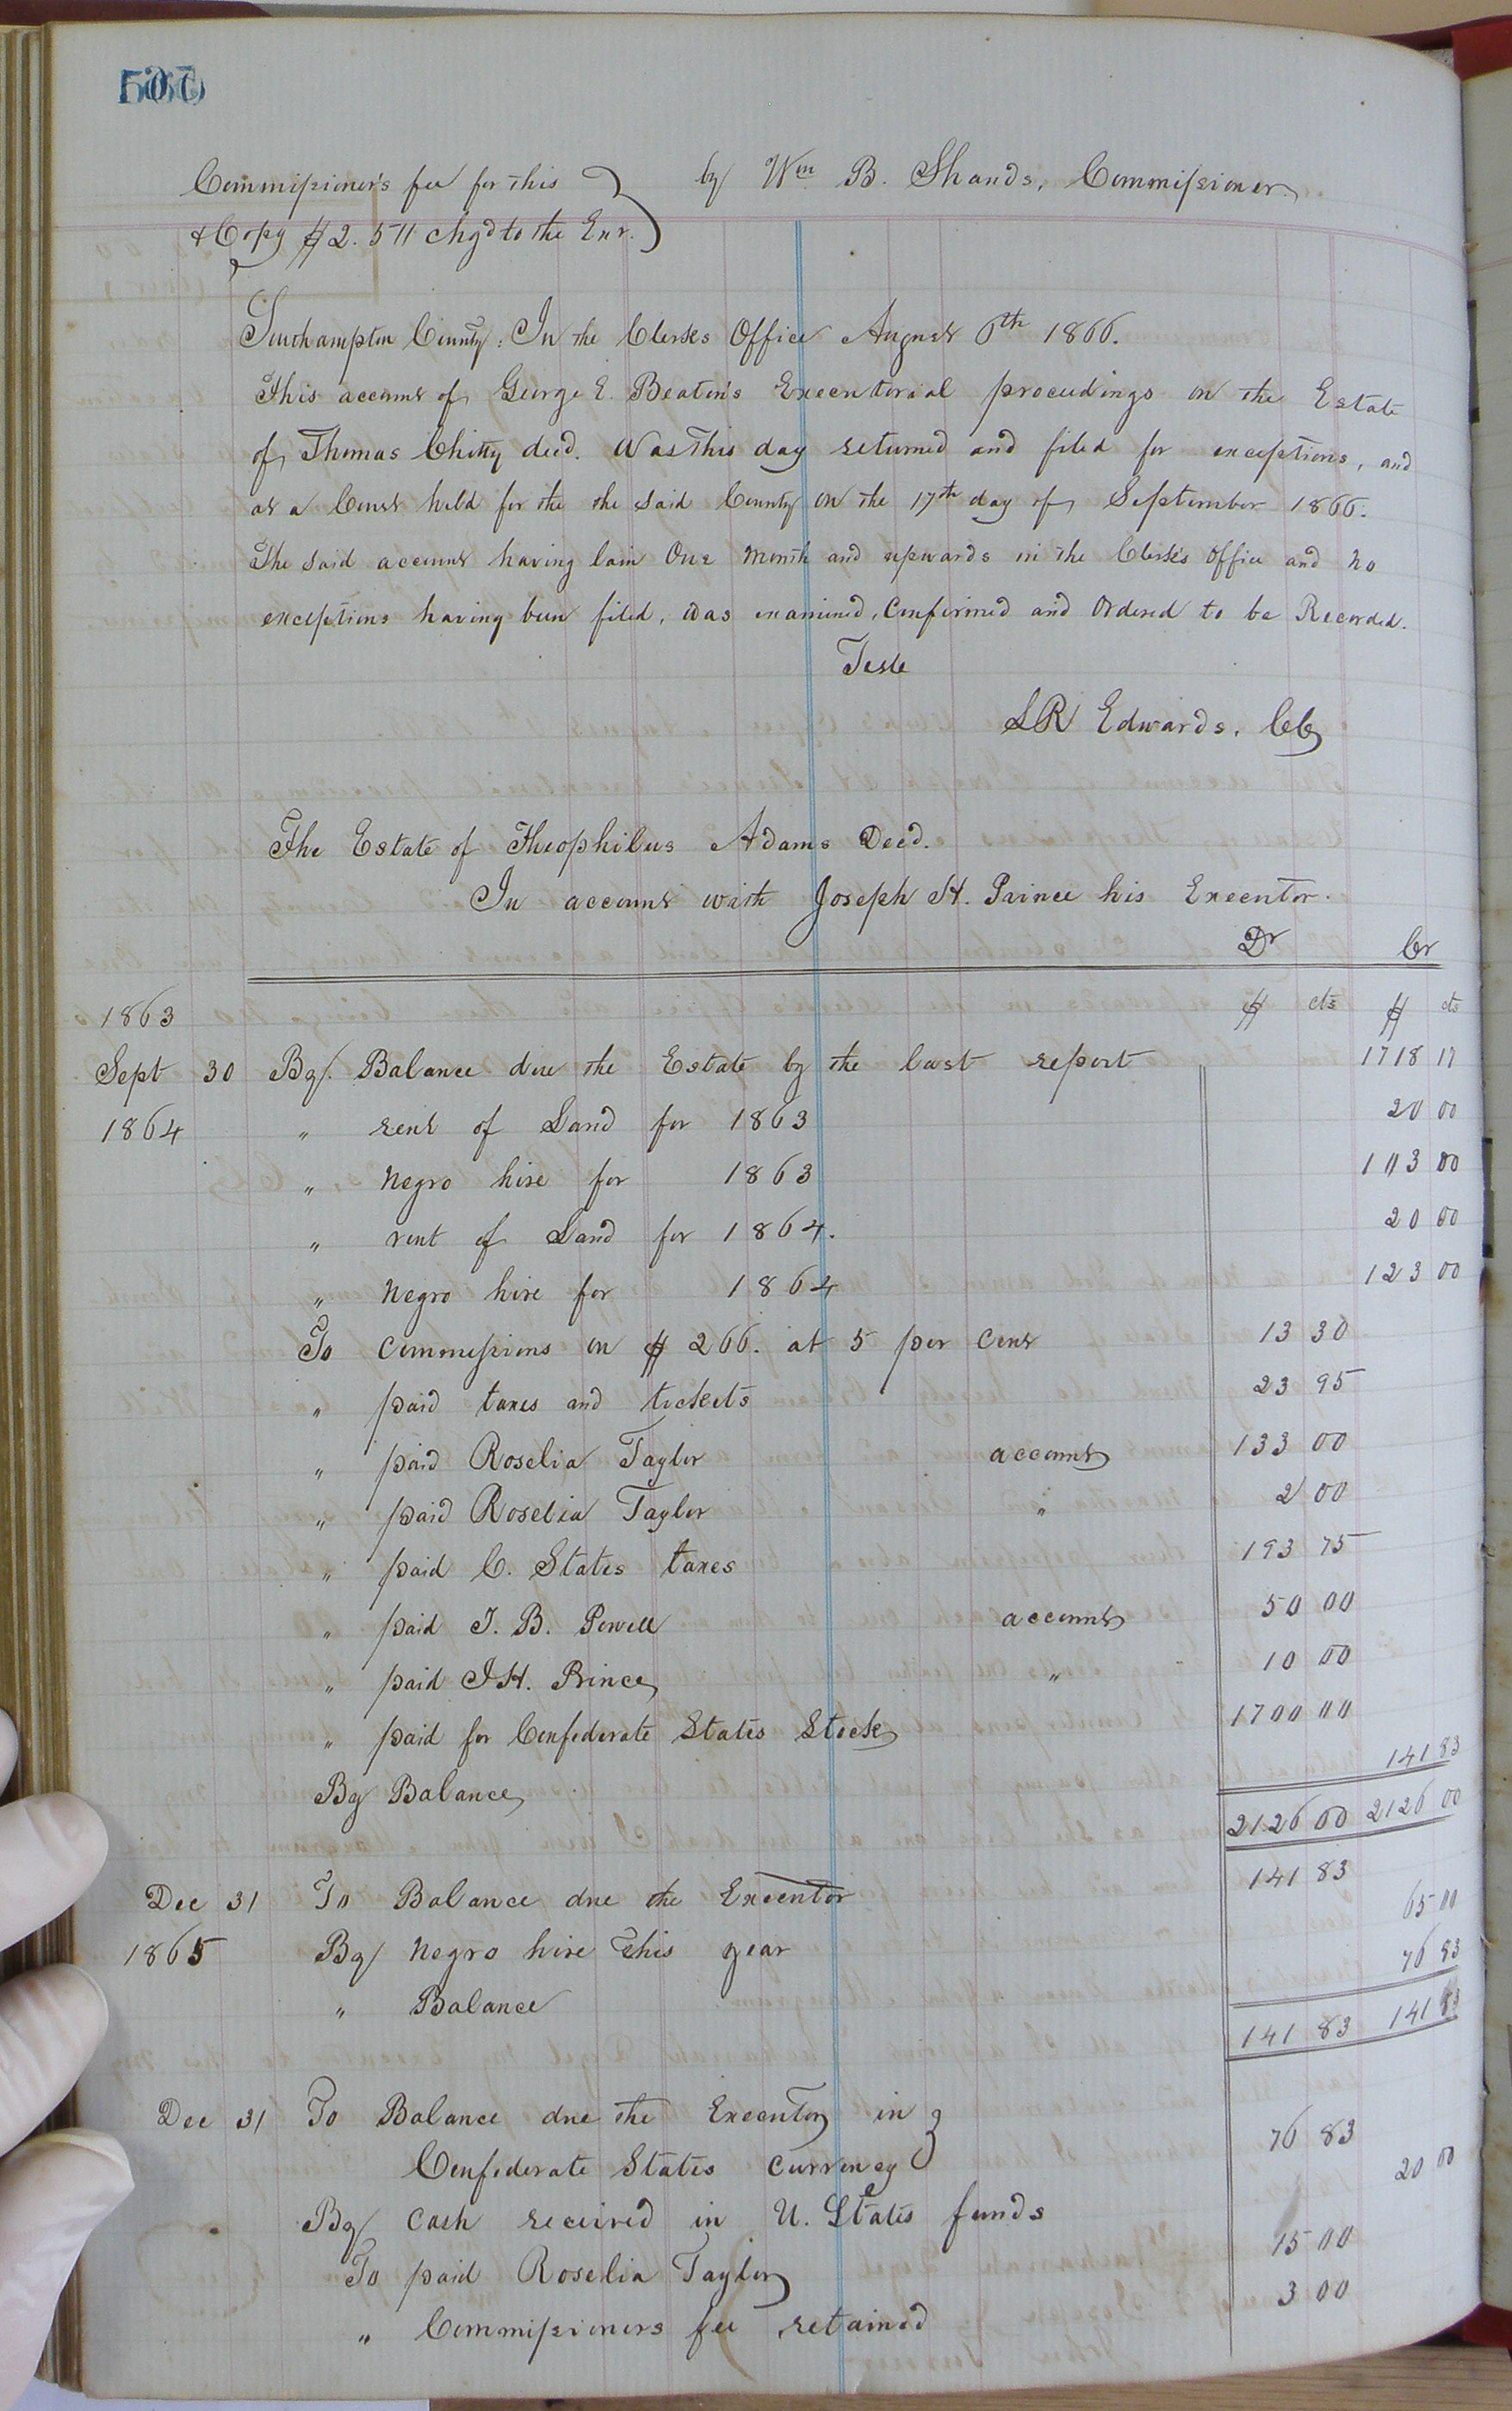 Commissioner's fee for this } by Wm B. Shands, Commissioner.
& Copy $2.50 chgd to the Exr.
Southampton County: In the Clerks Office August 6th 1866.
This account of George E. Beaton's Executorial proceedings on the Estate
of Thomas Chitty decd. Was this day returned and filed for exceptions, and
at a Court held for the the said County on the 17th day of September 1866.
The said account having lain One Month and upwards in the Clerk's Office and no
exceptions having been filed, was examined, Confirmed and Ordered to be Recorded.
Teste
LR Edwards, CC
The Estate of Theophilus Adams Decd.
In account with Joseph H. Prince his Executor.
Dr Cr
1863 $ cts $ cts
Sept 30 By Balance due the Estate by the last report 1718 17
1864 " rent of Land for 1863 20 00
" Negro hire for 1863 103 00
" rent of Land for 1864. 20 00
" Negro hire for 1864 123 00
To Commissions on $266. at 5 per Cent 13 30
" paid taxes and tickets 23 95
" paid Roselia Taylor account 133 00
" paid Roselia Taylor " 2 00
" paid C. States taxes 193 75
" paid J. B. Powell account 50 00
" paid J H. Prince " 10 00
" paid for Confederate States Stock 1700 00
By Balance 141 83
2126 00 2126 00
Dec 31 To Balance due the Executor 141 83
1865 By Negro hire this year 65 00
" Balance 76 83
141 83 141 83
Dec 31 To Balance due the Executor in }
Confederate States Currency } 76 83
By Cash received in U. States funds 20 00
To paid Roselia Taylor 15 00
" Commissioners fee retained 3 00